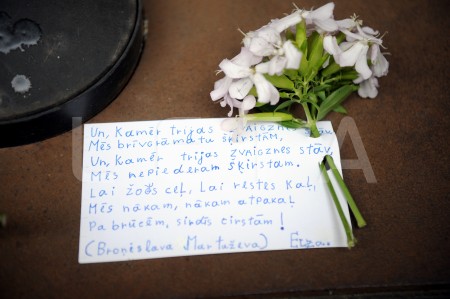 Un, Kamēr trijas zvaigznes
Mēs brīvorāmatu šķirstām,
Un, Kamēr trijas zvaigznes stāv,
Mēs nepiederam šķirstam.
Lai žodš ceļ, Lai restes Kaļ,
Mēs nākam, nākam atpakaļ
Pa brūcēm, sirdīs cirstām!
(Broņislava Martuževa) Elza.